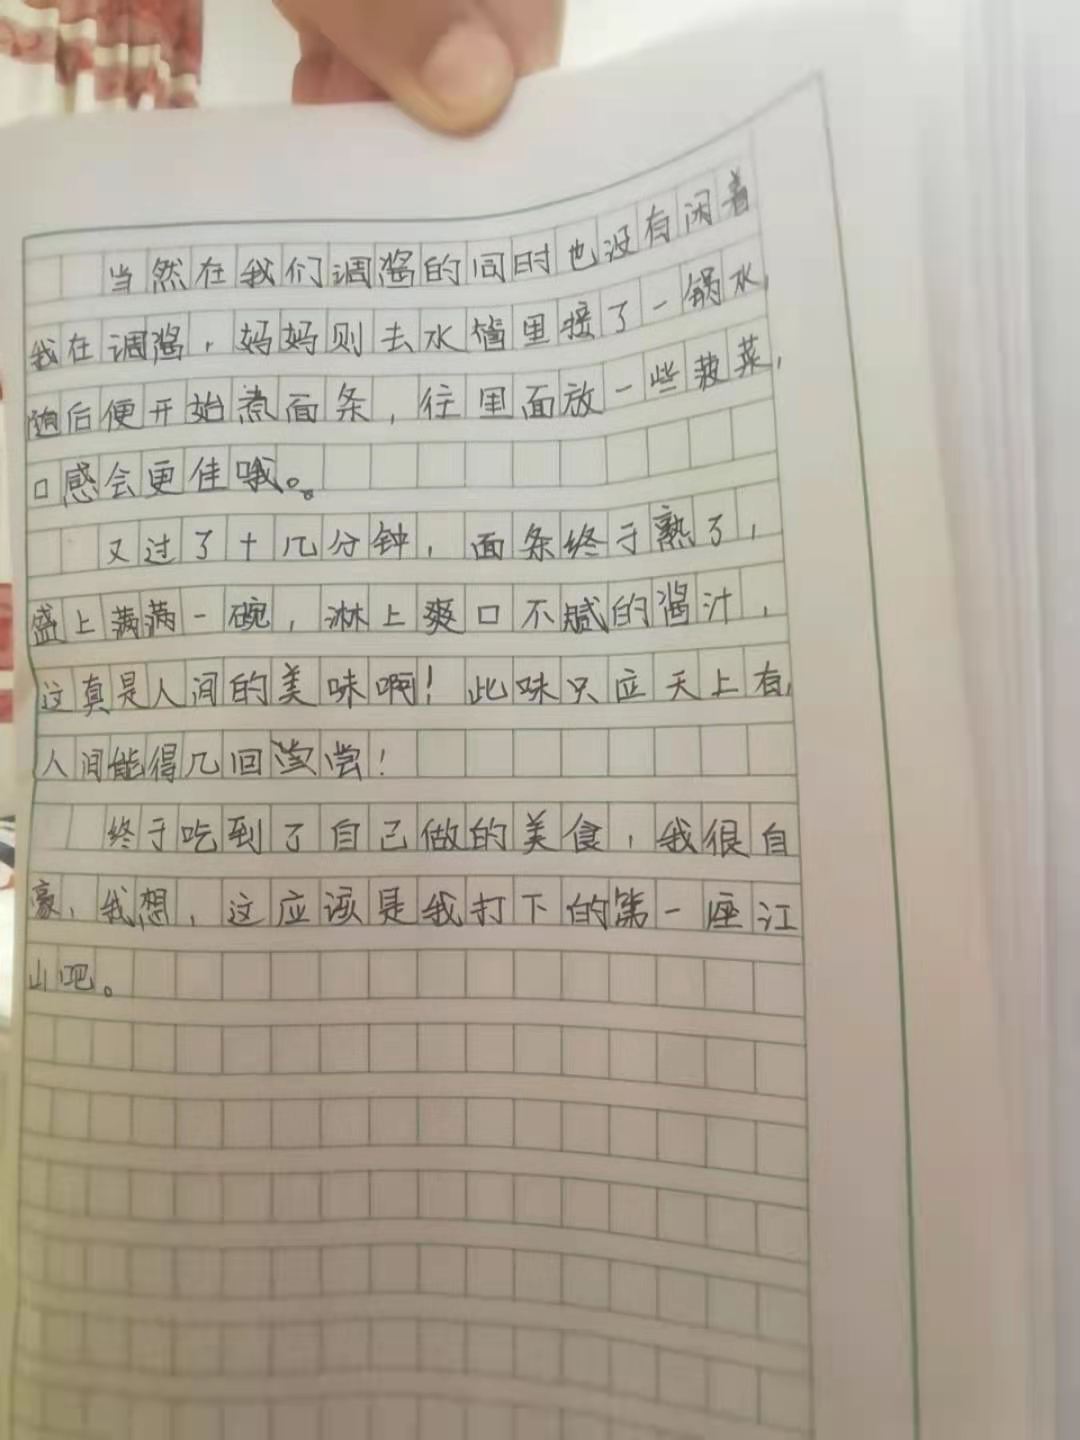 当然在我们调酱的同时也没有闲着
我在调酱，妈妈则去水管里接了一锅水，
随后便开始煮面条，往里面放一些菠菜，
口感会更佳哦。
又过了十几分钟，面条终于熟了，
盛上满满一碗，淋上爽口不腻的酱汁，
这真是人间的美味啊！此味只应天上有，
人间能得几回尝！
终于吃到了自己做的美食，我很自
豪，我想，这应该是我打下的第一座江
山吧。